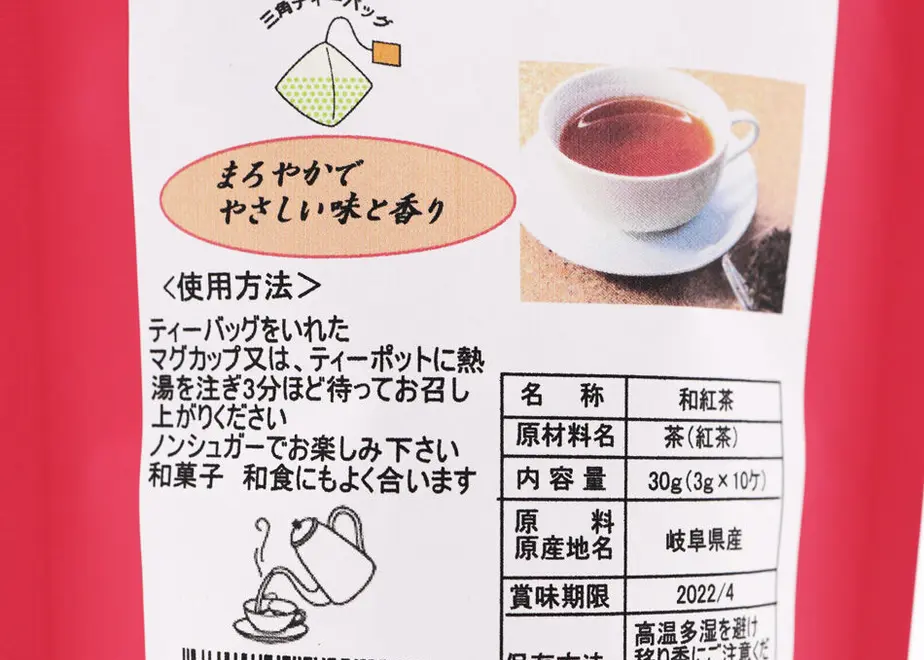 三角ティーバッグ
まろやかで
やさしい味と香り
<使用方法>
ティーバッグをいれた
マグカップ又は、ティーポットに熱
湯を注ぎ3分ほど待ってお召し
上がりください
ノンシュガーでお楽しみ下さい
和菓子 和食にもよく合います
名称 和紅茶
原材料名 茶(紅茶)
内容量 30g(3g×10ケ)
原料
原産地名 岐阜県産
賞味期限 2022/4
保存方法 高温多湿を避け
移り香にご注意くだ